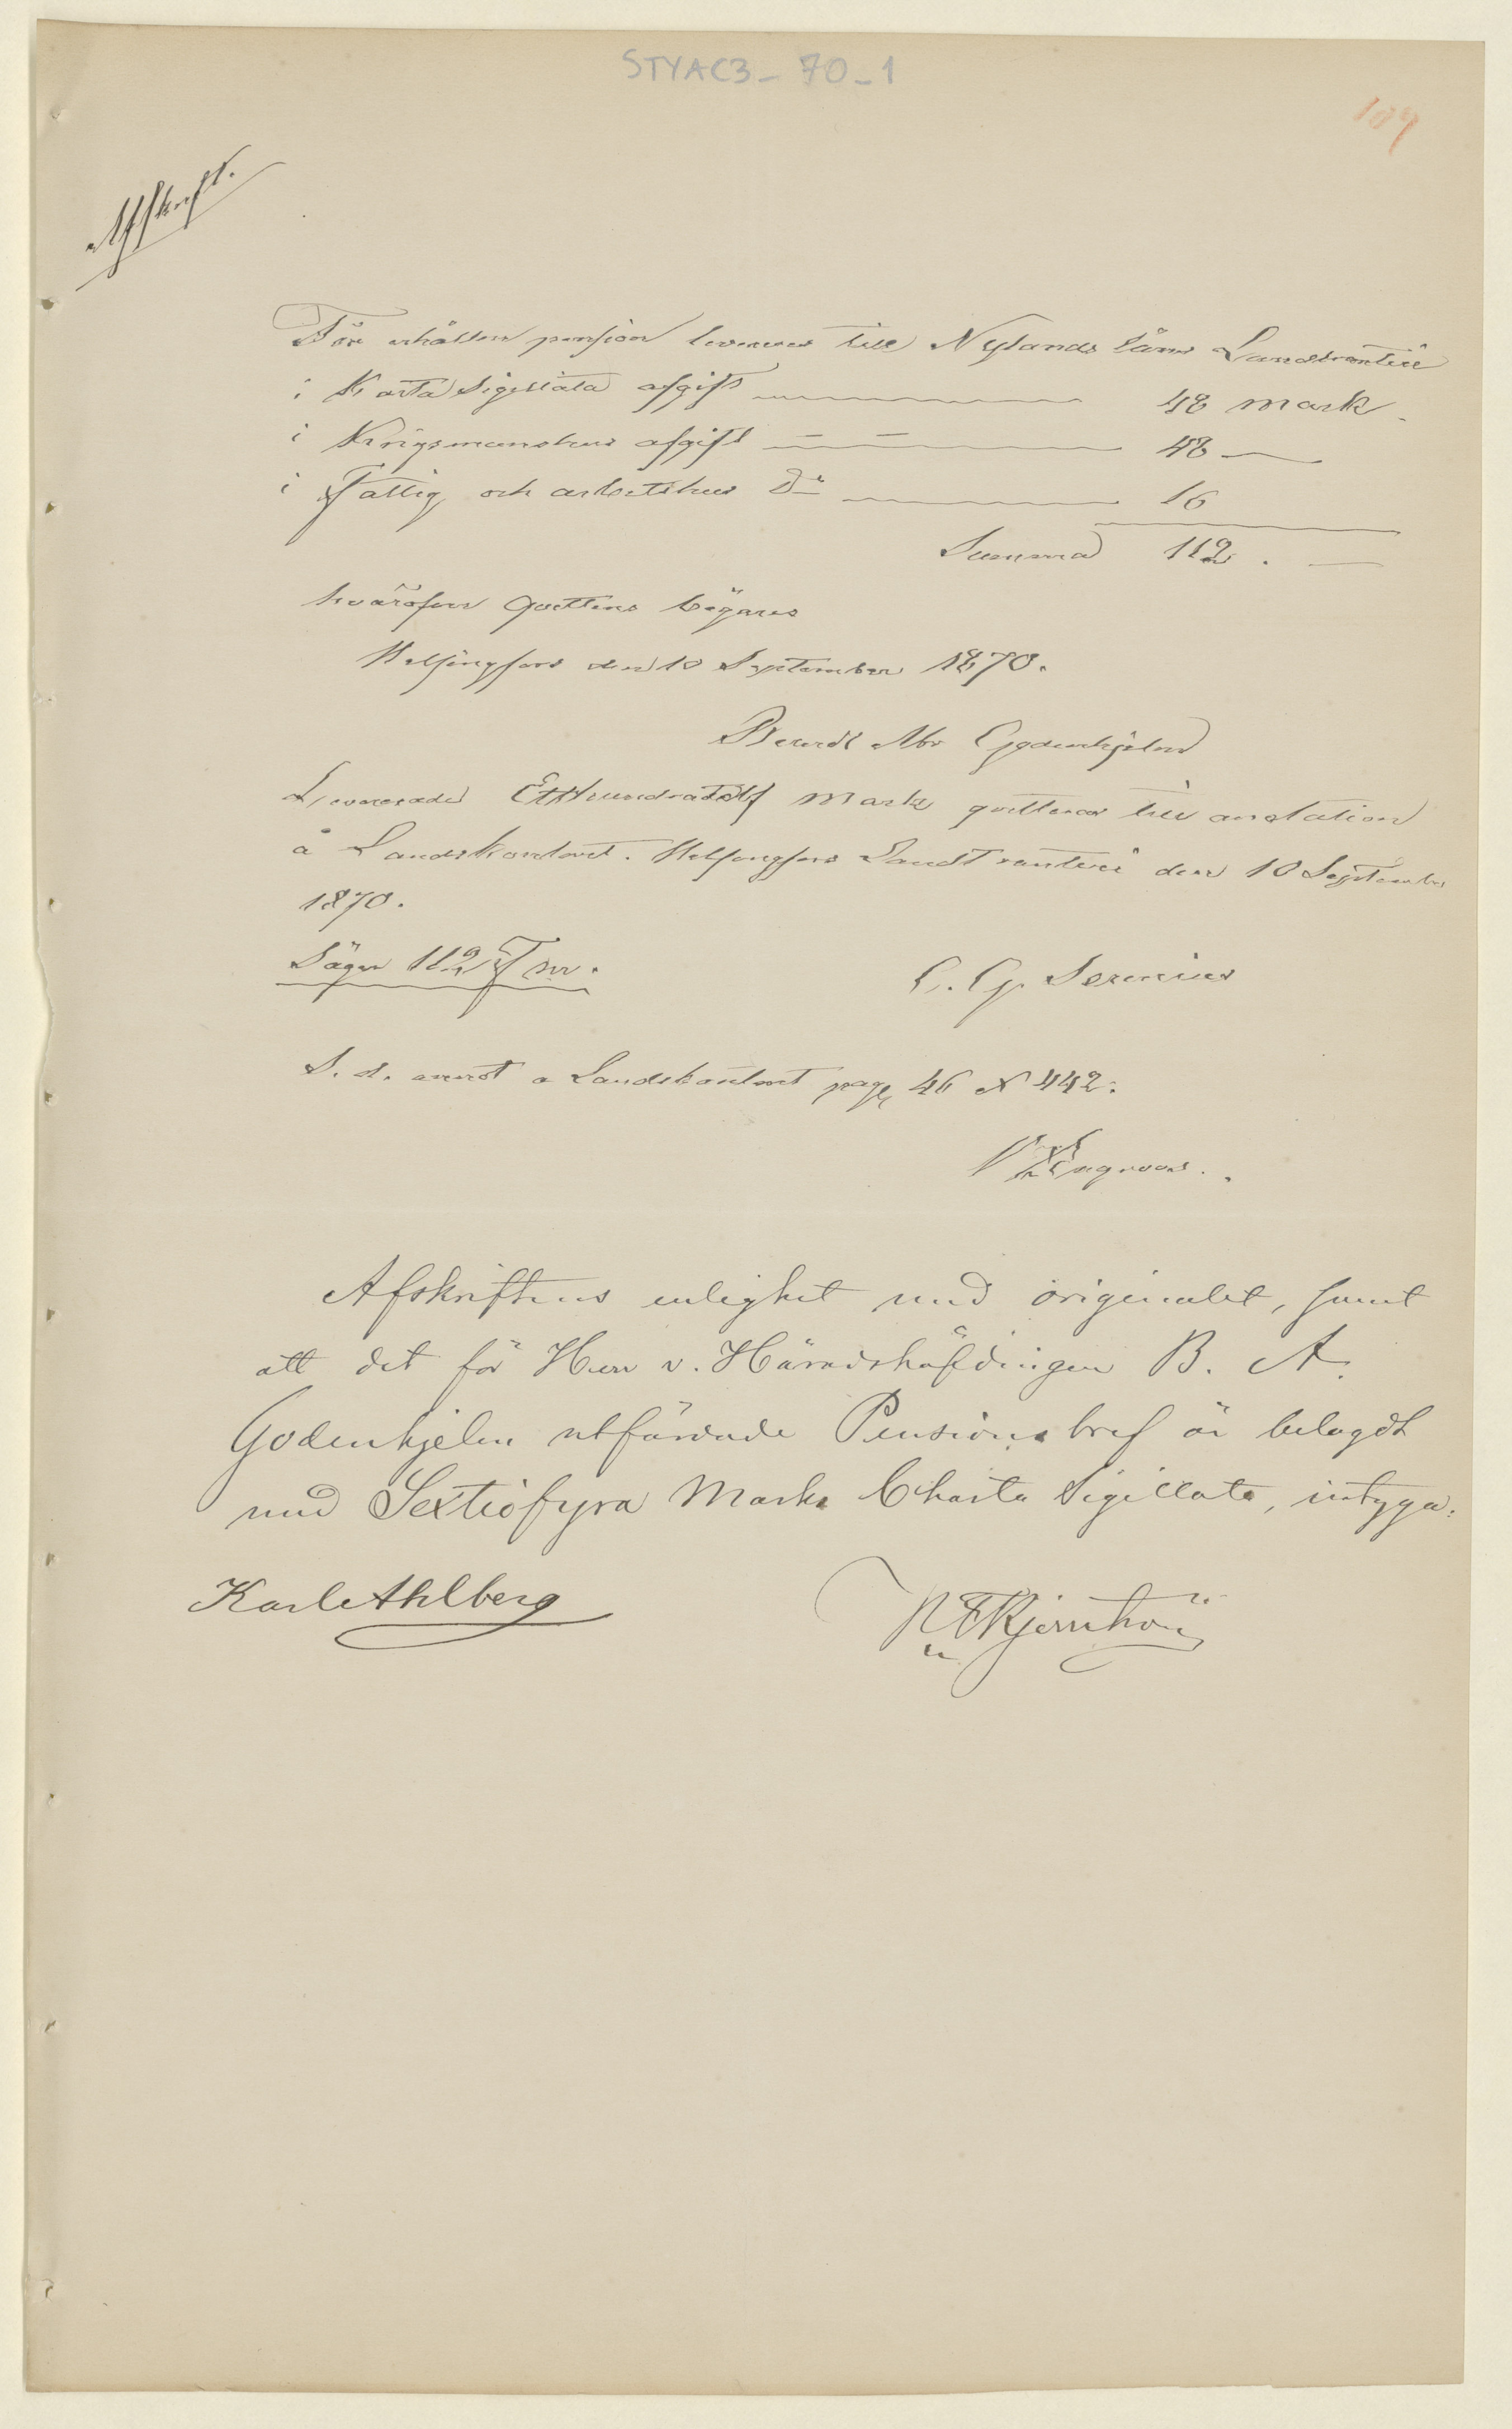 STYAC3_70_1
109
Afskrift.
För erhållen pension levereras till Nylands läns Landtränteri
i Karta Sigillata afgift 48 mark
i Krigsmanshus afgift 48
i Fattig och arbetshus Do 16
Summa 112.
hvaröfver qvittens begäres
Helsingfors den 10 September 1870.
Berndt Abr Godenhjelm
Levererade Etthundratolf mark qvitteras till anotation
å Landskontoret. Helsingfors Landtränteri den 10 September
1870.
Säger 112 Fmr.
C. G. Serenius
S. d. annot a Landskontoret page 46 N 442.
Afskriftens enlighet med originalet, samt
att det för Herr v. Häradshöfdingen B. A.
Godenhjelm utfärdade Pensions bref är belagdt
med Sextiofyra Marks Charta Sigillata, intyga:
Karl Ahlberg